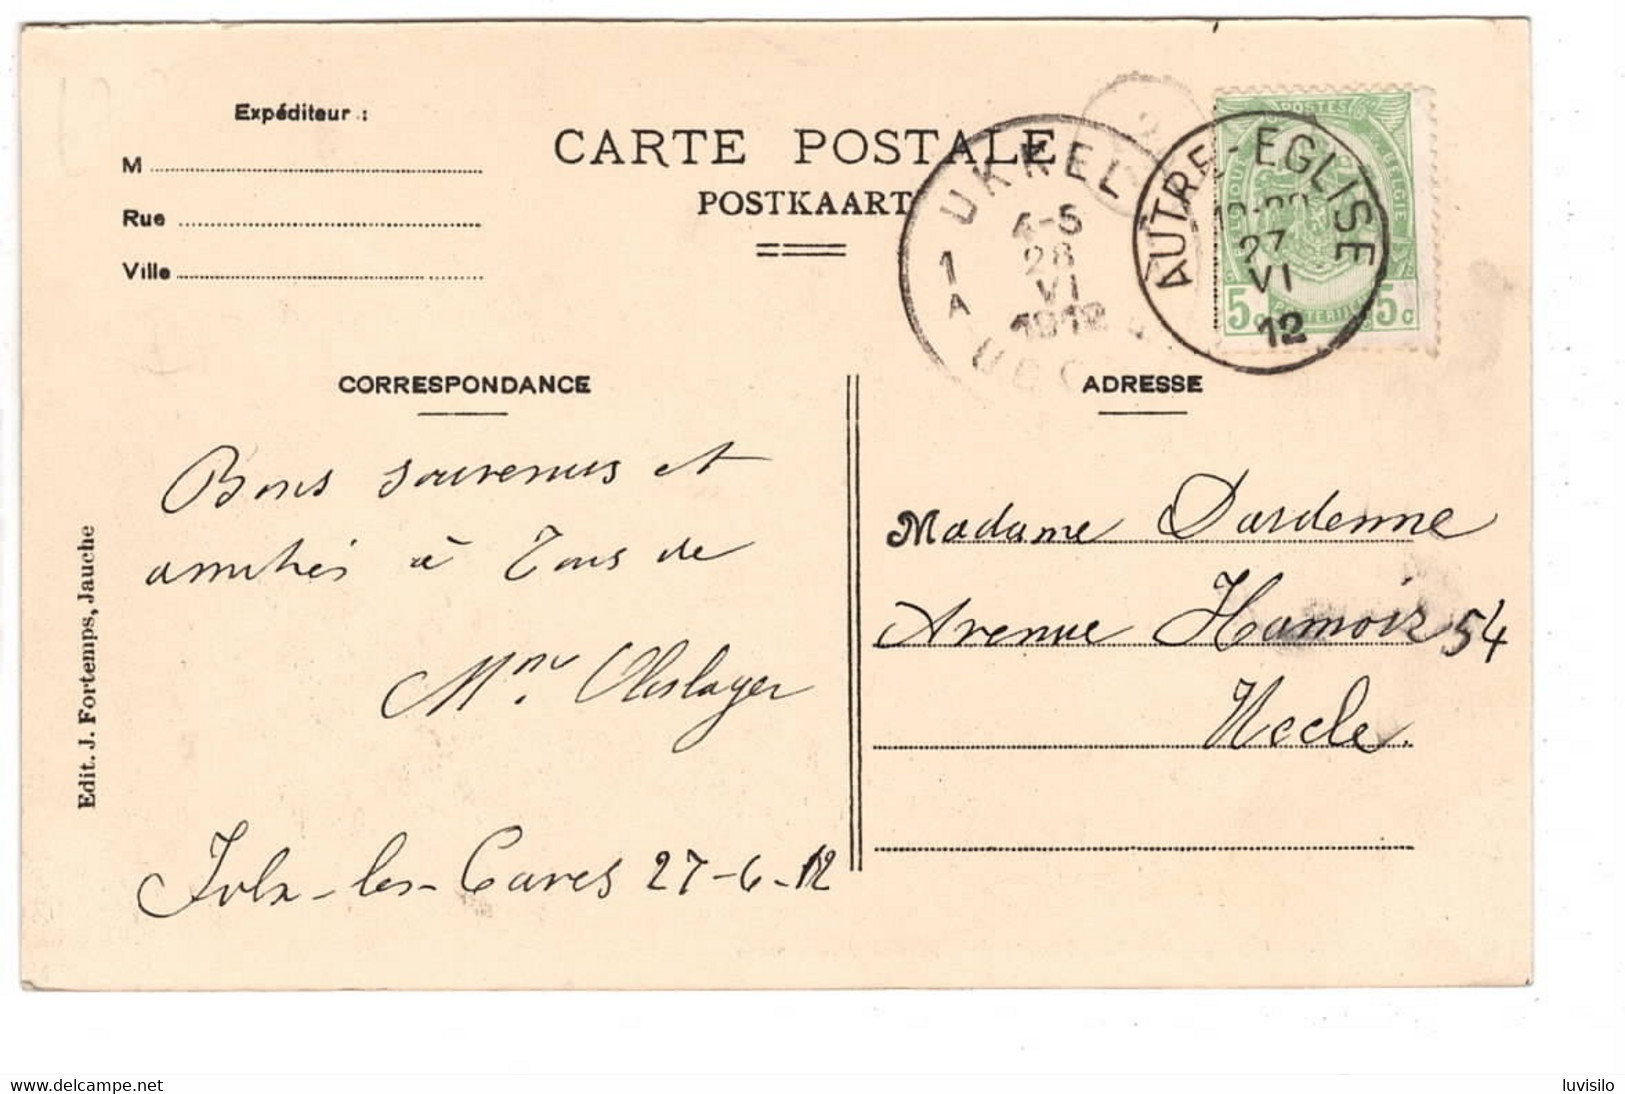 Expéditeur :
M
Rue
Ville
CARTE POSTALE
POSTKAART
UKKEL
4-5
28
VI
1912
1
A
UCC
AUTRE-EGLISE
27
VI
12
POSTES
BELGIE
5c
5c
CORRESPONDANCE
ADRESSE
Bons souvenirs et
amitiés à Tous de
Mme Oleslager
Folx-les-Caves 27-6-12
Madame Dardenne
Avenue Hamoir 54
Uccle.
Edit. J. Fortemps, Jauche
www.delcampe.net
luvisilo